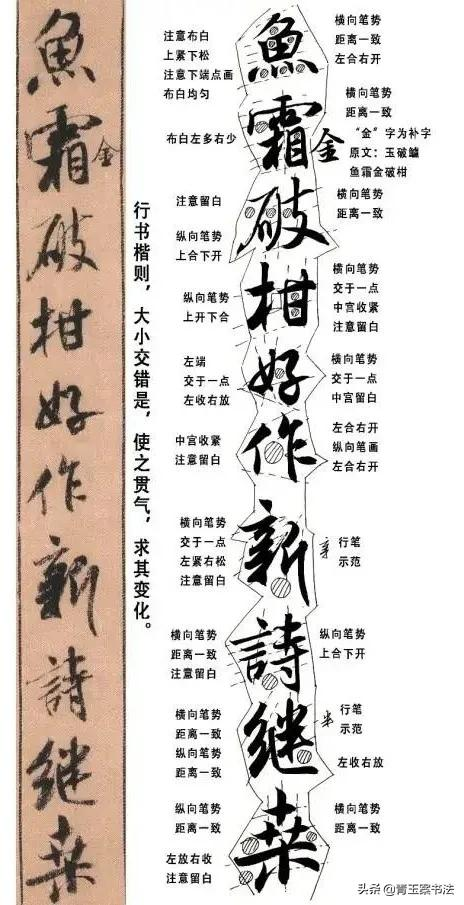 魚霜破柑好作新詩継桒
金
行书楷则，大小交错是，使之贯气，求其变化。
注意布白
上紧下松
注意下端点画
布白均匀
魚
横向笔势
距离一致
左合右开
布白左多右少
霜
金
横向笔势
距离一致
“金”字为补字
原文：玉破鲈
鱼霜金破柑
注意留白
纵向笔势
上合下开
破
横向笔势
距离一致
纵向笔势
上开下合
柑
横向笔势
交于一点
中宫收紧
注意留白
左端
交于一点
左收右放
好
横向笔势
交于一点
中宫留白
中宫收紧
注意留白
作
左合右开
纵向笔画
左合右开
横向笔势
交于一点
左紧右松
注意留白
新
行笔
示范
横向笔势
距离一致
注意留白
詩
纵向笔势
上合下开
横向笔势
距离一致
纵向笔势
距离一致
継
行笔
示范
左收右放
纵向笔势
距离一致
左放右收
注意留白
桒
横向笔势
距离一致
头条 @青玉案书法